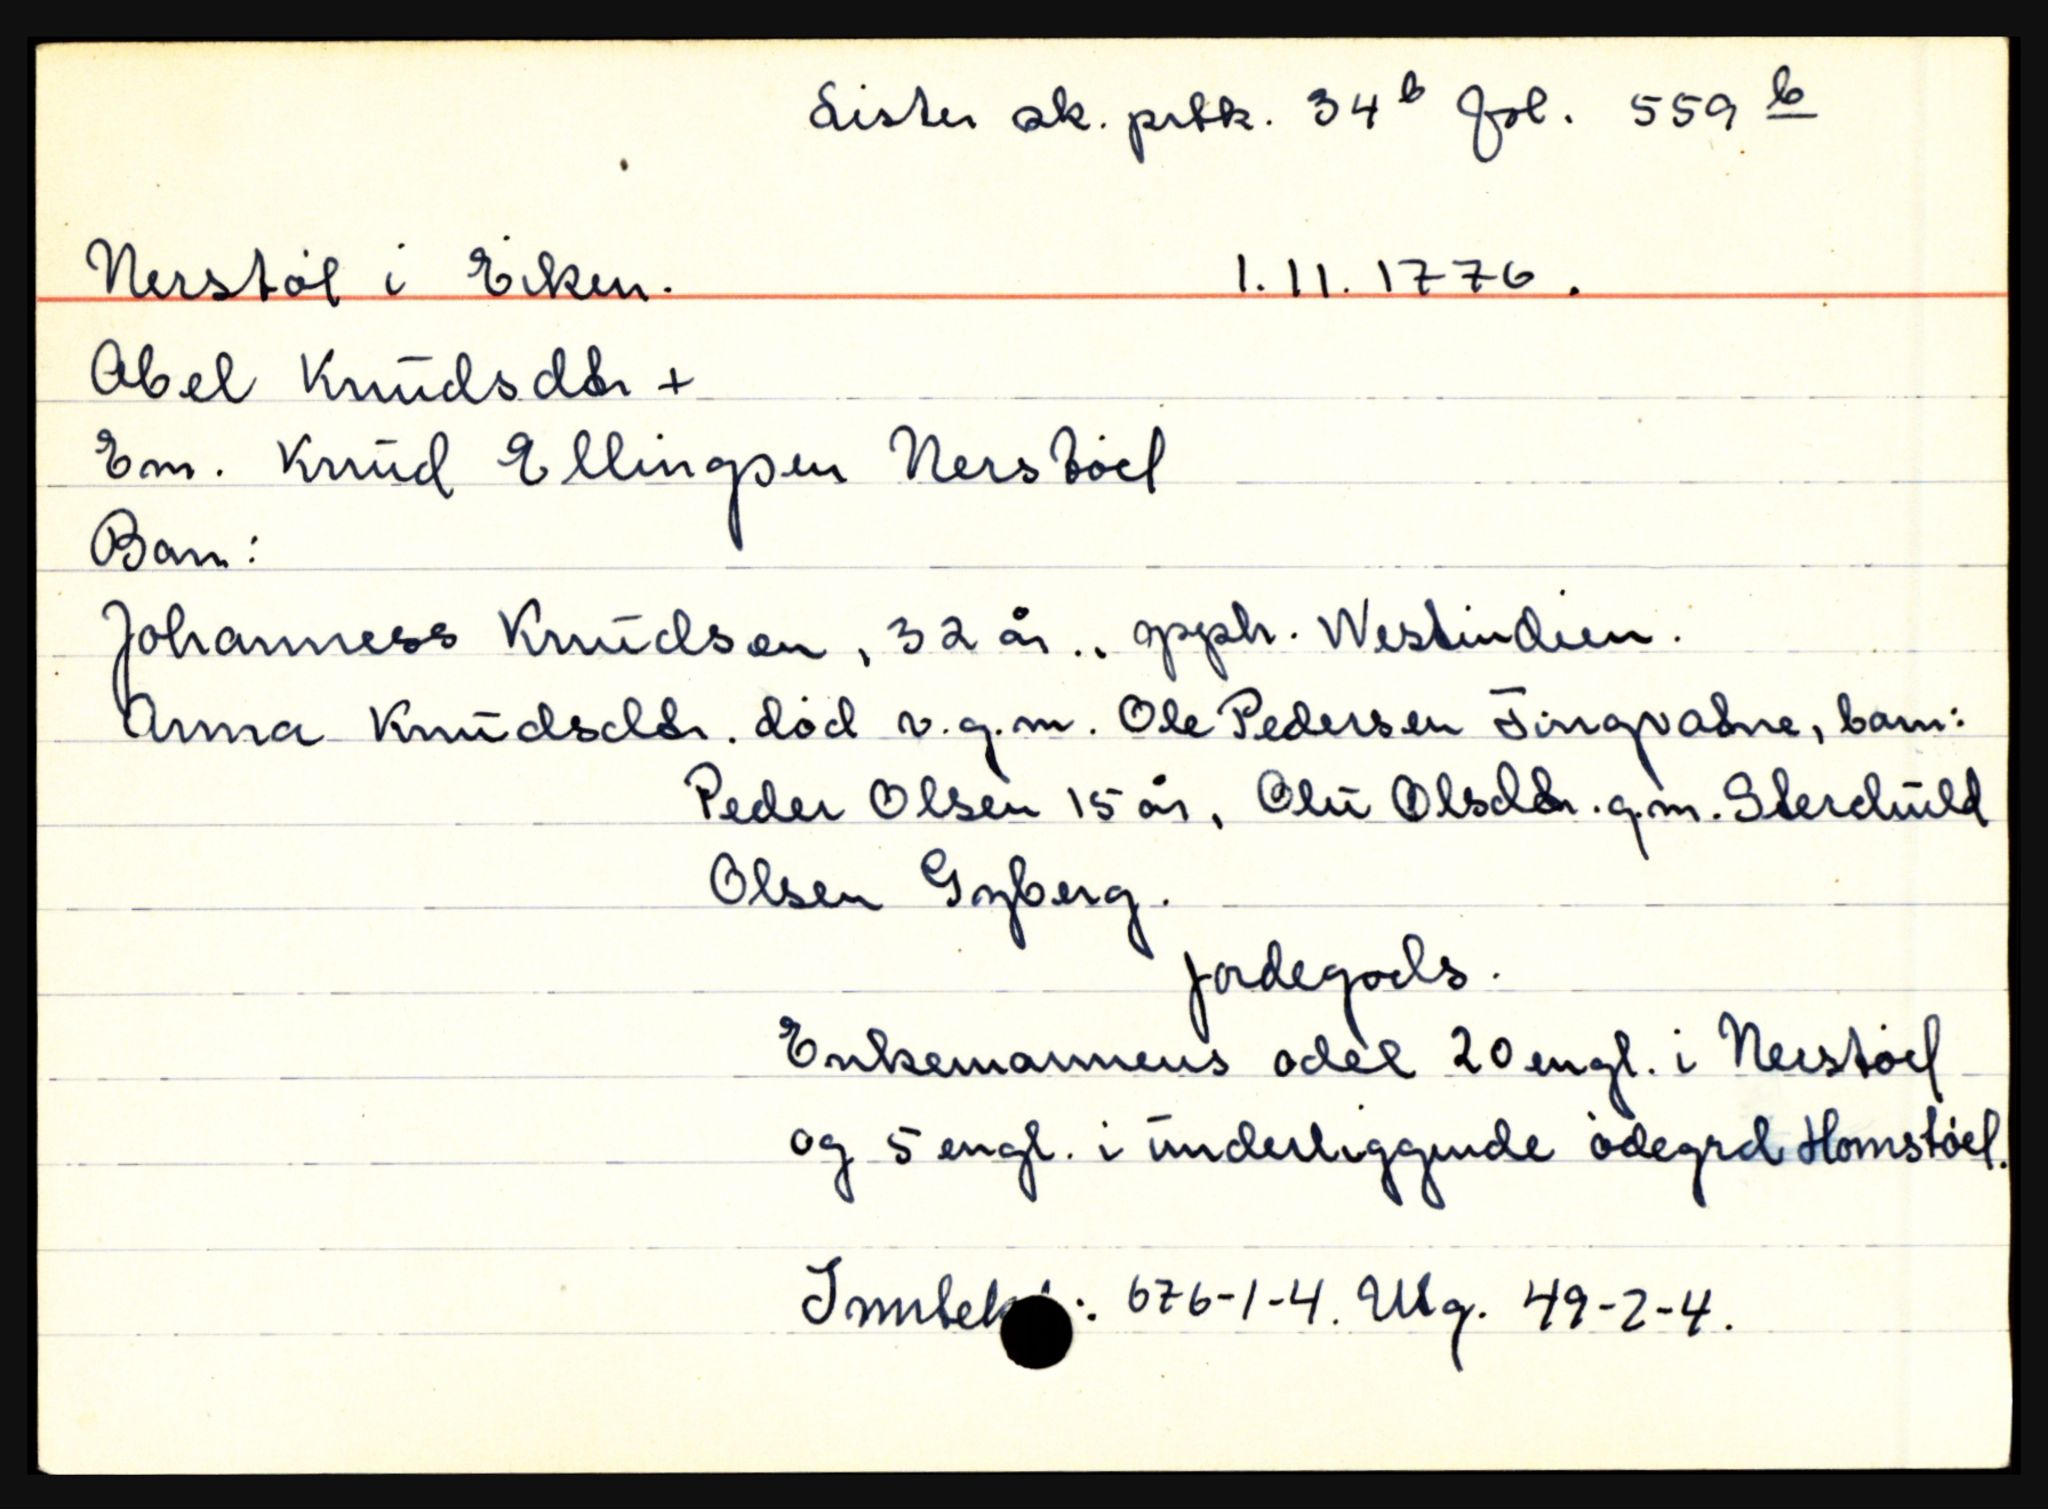 Lister sk. prtk. 34b fol. 559 b
Nerstøl i Eiken. 1.11.1776.
Abel Knudsdtr +
Em. Knud Ellingsen Nerstøel
Barn:
Johanness Knudsen, 32 år., opph. Westindien.
Anna Knudsdtr. død v.g.m. Ole Pedersen Tingvatne, barn:
Peder Olsen 15 år, Olu Olsdtr. g.m. Sterchuld
Olsen Gyberg.
Jordegods.
Enkemannens odel 20 engl. i Nerstøel
og 5 engl. i underliggende ødegrd Homstøel.
Inntekt: 676-1-4. Utg. 49-2-4.